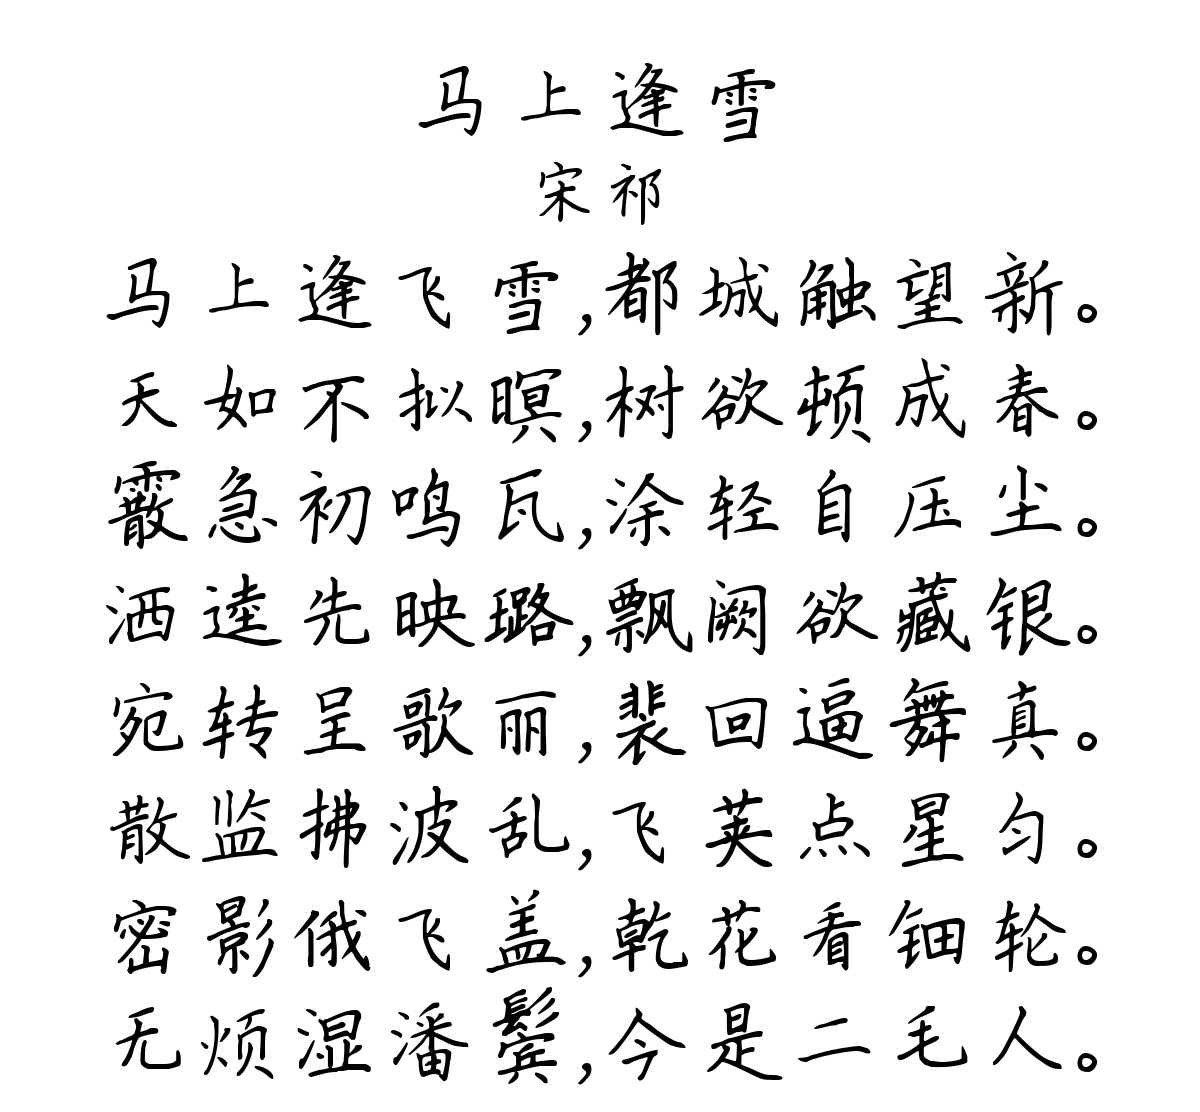 马上逢雪
宋祁
马上逢飞雪,都城触望新。
天如不拟暝,树欲顿成春。
霰急初鸣瓦,涂轻自压尘。
洒逵先映璐,飘阙欲藏银。
宛转呈歌丽,裴回逼舞真。
散监拂波乱,飞荚点星匀。
密影俄飞盖,乾花看钿轮。
无烦湿潘鬓,今是二毛人。